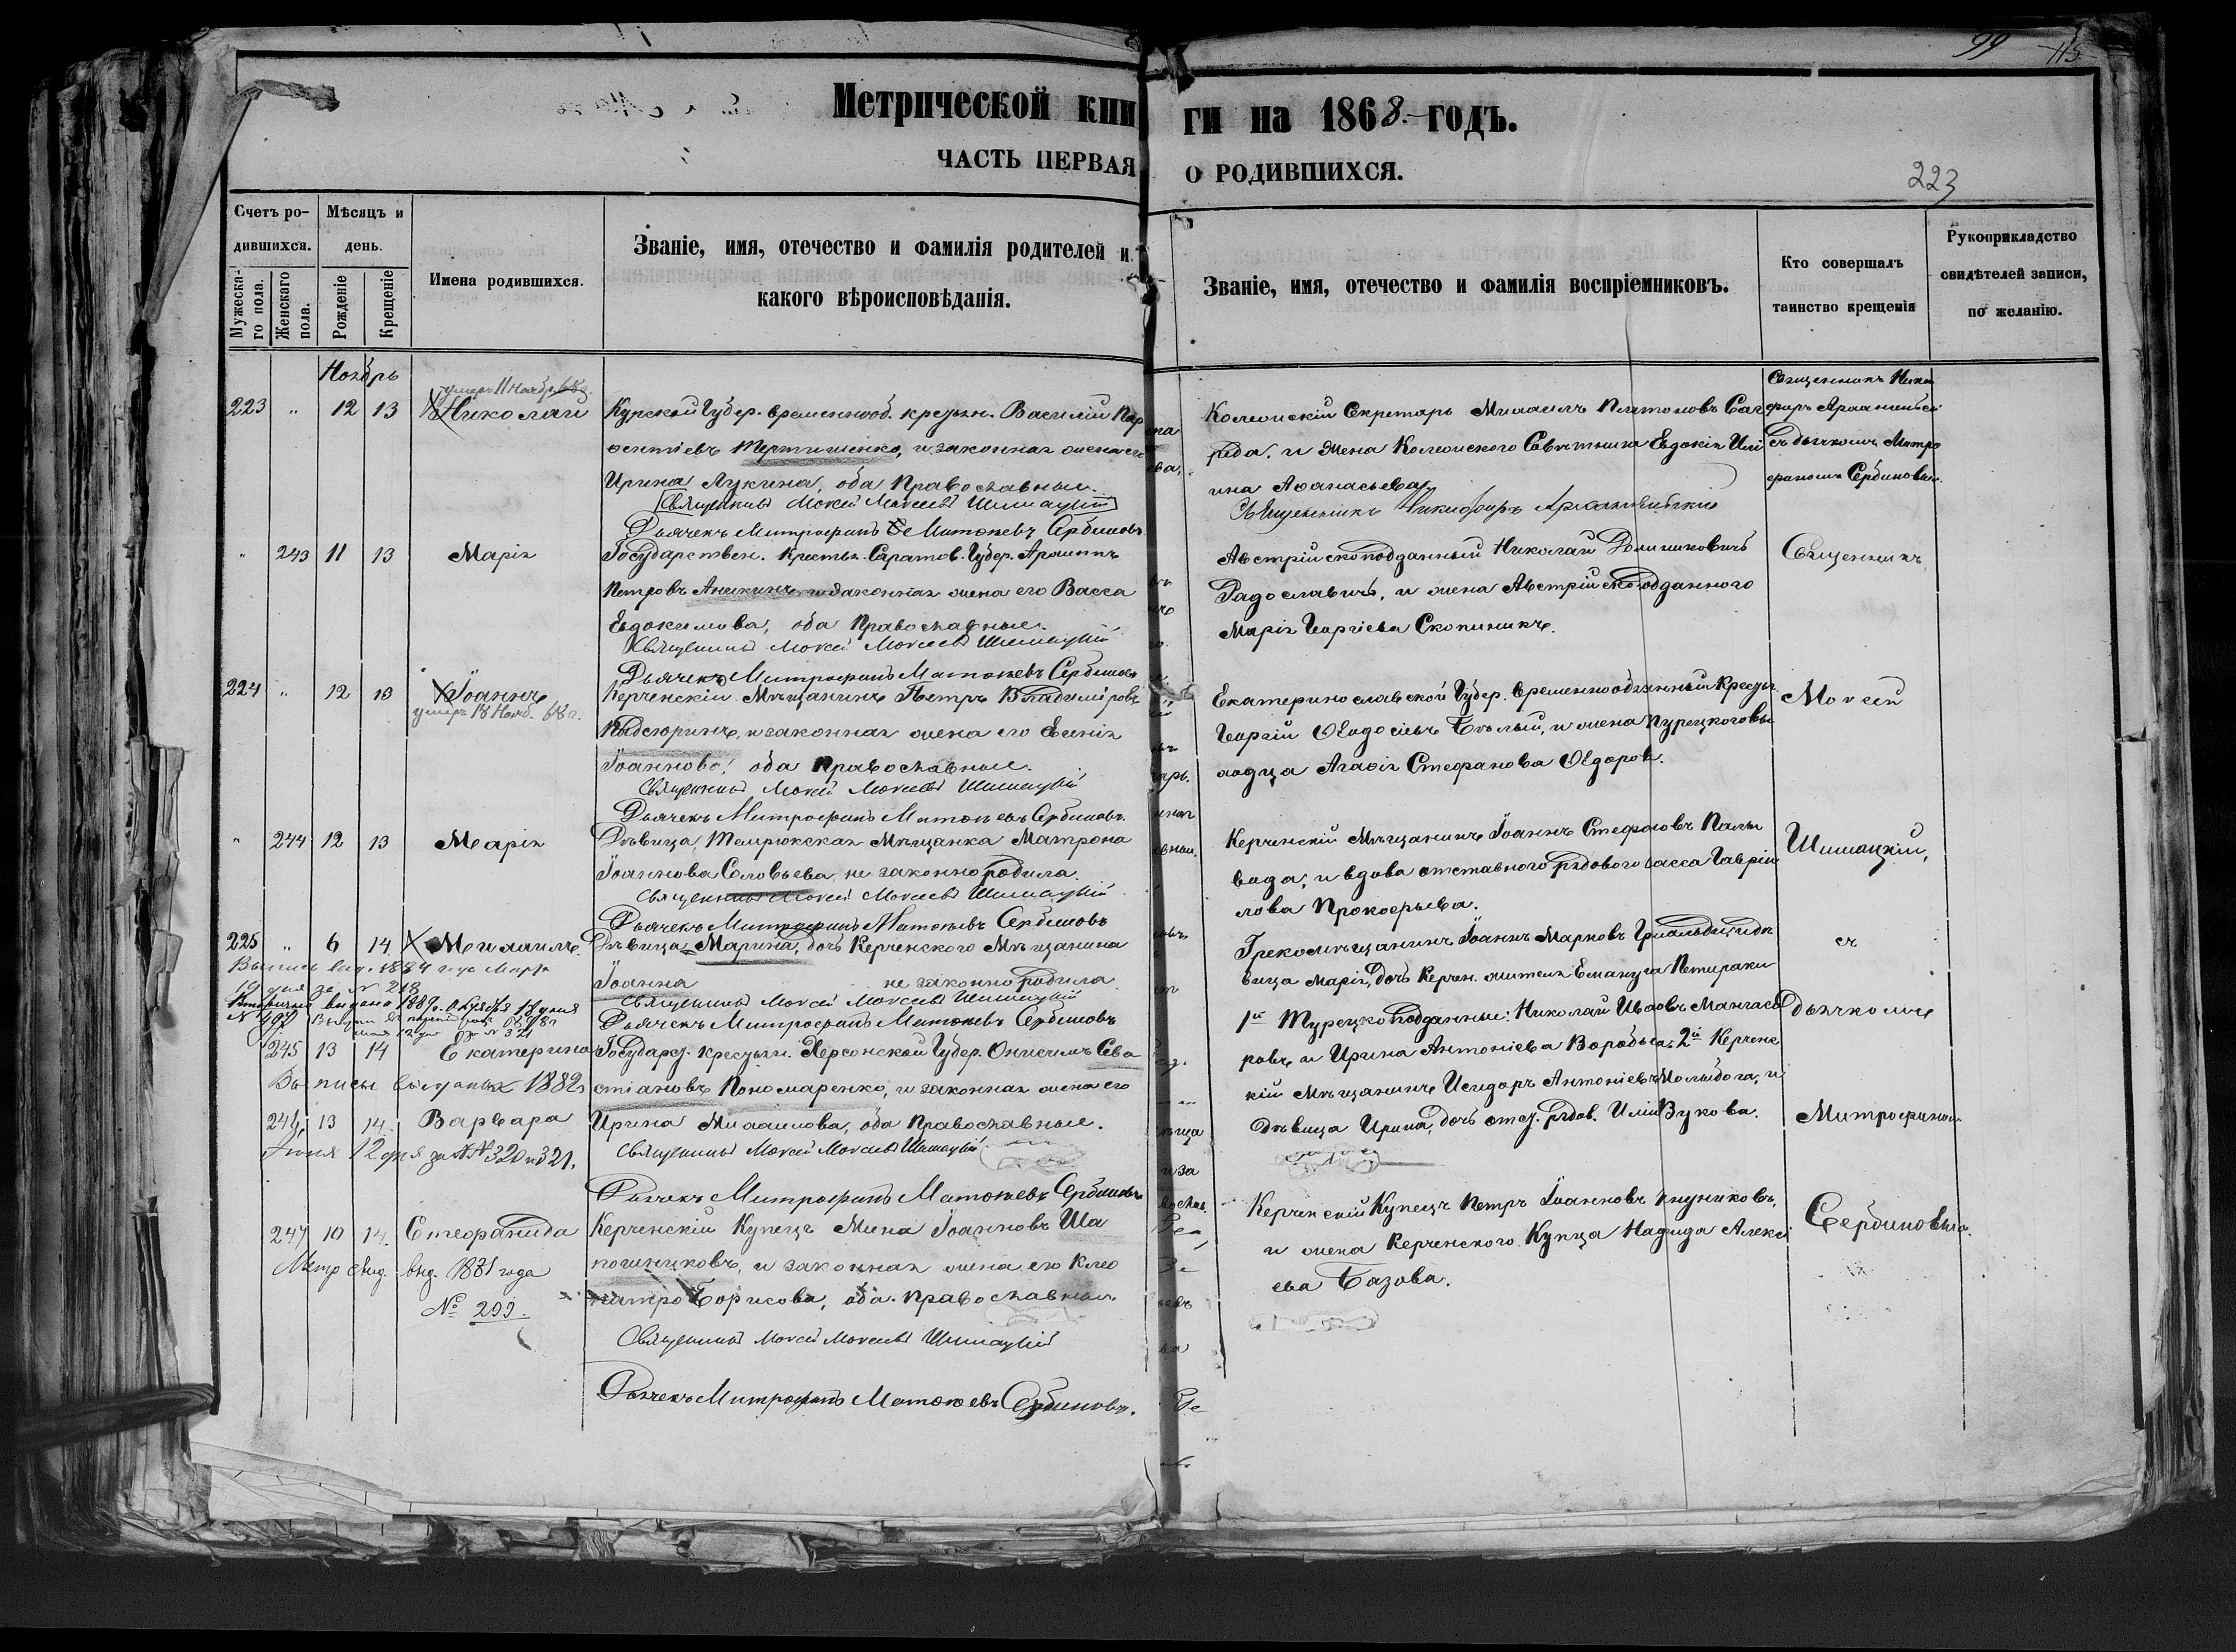 99 115
Метрической кни ги на 1868 годъ.
ЧАСТЬ ПЕРВАЯ О РОДИВШИХСЯ.
223
Счетъ родившихся.
Мужескаго пола.
Женскаго пола.
Мѣсяцъ и день.
Рожденіе
Крещеніе
Имена родившихся.
Званіе, имя, отечество и фамилія родителей и
какого вѣроисповѣданія.
Званіе, имя, отечество и фамилія воспріемниковъ.
Кто совершалъ
таинство крещенія
Рукоприкладство
свидѣтелей записи,
по желанію.
Ноябрь
223 " 12 13 Николай
Курской Губер. временнооб. крестьян. Василій Пар
фентіевъ Тертишенко, и законная жена его
Ирина Лукина, оба Православные.
Священникъ Мокей Мокеевъ Шишацкій
Дьячекъ Митрофанъ Матөеевъ Сербиновъ
Колежскій Секретарь Михаилъ Платоновъ
и Жена Колежского Совѣтника Евдокія Илі
ина Афанасьева.
Священникъ Никифоръ
Священникъ Ники
форъ
съ дьячкомъ Митро
фаномъ Сербиновым.
" 243 11 13 Марія
Государствен. Крестья. Саратов. Губер.
Петровъ Аникинъ, и законная жена его Васса
Евдокимова, оба Православные.
Священникъ Мокей Мокеевъ Шишацкій
Дьячекъ Митрофанъ Матөеевъ Сербиновъ
Австрійскоподданный Николай Доминиковичъ
Радославичъ, и жена Австрійскоподданного
Марія Георгіева
Священникъ
224 " 12 13 Іоаннъ
умеръ 18 Нояб. 68 г.
Керченскій Мѣщанинъ Петръ Владиміровъ
и законная жена его Ксенія
Іоаннова, оба Православные.
Священникъ Мокей Мокеевъ Шишацкій
Дьячекъ Митрофанъ Матөеевъ Сербиновъ.
Екатеринославской Губер. временнообязанный Кресть.
Георгій Ѳеодосіевъ Бѣлый, и жена Турецкого вы
ходца Агафія Стефанова Ѳедорова.
Мокей
" 244 12 13 Марія
Дѣвица, Темрюкская Мѣщанка Матрона
Іоаннова Соловьева, не законно родила.
Священникъ Мокей Мокеевъ Шишацкій
Дьячекъ Митрофанъ Матөеевъ Сербиновъ
Керченскій Мѣщанинъ Іоаннъ Стефановъ Палы
вода, и вдова отставного рядового Васса Гаврі
лова Прокофьева.
Шишацкій,
225 " 6 14 Михаилъ
Выпись выд. 1884 года Марта
19 дня за № 213
Дѣвица Марина, дочь Керченского Мѣщанина
Іоанна не законно родила
Священникъ Мокей Мокеевъ Шишацкій
Дьячекъ Митрофанъ Матөеевъ Сербиновъ
Грекомѣщанинъ Іоаннъ Марковъ и дѣ
вица Марія, дочь Керчен. жителя Емануила Петираки
съ
245 13 14 Екатерина
Выписи выданы 1882 г.
246 13 14. Варвара
Іюня 12 дня за №№ 320 и 321.
Государ. крестьян. Херсонской Губер. Онисимъ Сева
стіановъ Пономаренко, и законная жена его
Ирина Михаилова, оба Православные.
Священникъ Мокей Мокеевъ Шишацкій
Дьячекъ Митрофанъ Матөеевъ Сербиновъ
1й Турецкоподданные: Николай Ивановъ
и Ирина Антоніева Воробьева; 2й Керченс
кій Мѣщанинъ Исидоръ Антоніевъ и
дѣвица Ирина, дочь отст. рядов. Иліи Вукова.
дьячкомъ
Митрофаном
247 10 14. Стефанида
Метр. свид. выд. 1881 года
№ 299.
Керченскій Купецъ Мина Іоанновъ Ша
пошниковъ, и законная жена его Клео
патра Борисова, оба Православные.
Священникъ Мокей Мокеевъ Шишацкій
Дьячекъ Митрофанъ Матөеевъ Сербиновъ.
Керченскій Купецъ Петръ Іоанновъ
и жена Керченского Купца Надежда Алексі
ева Базова.
Сербиновым.